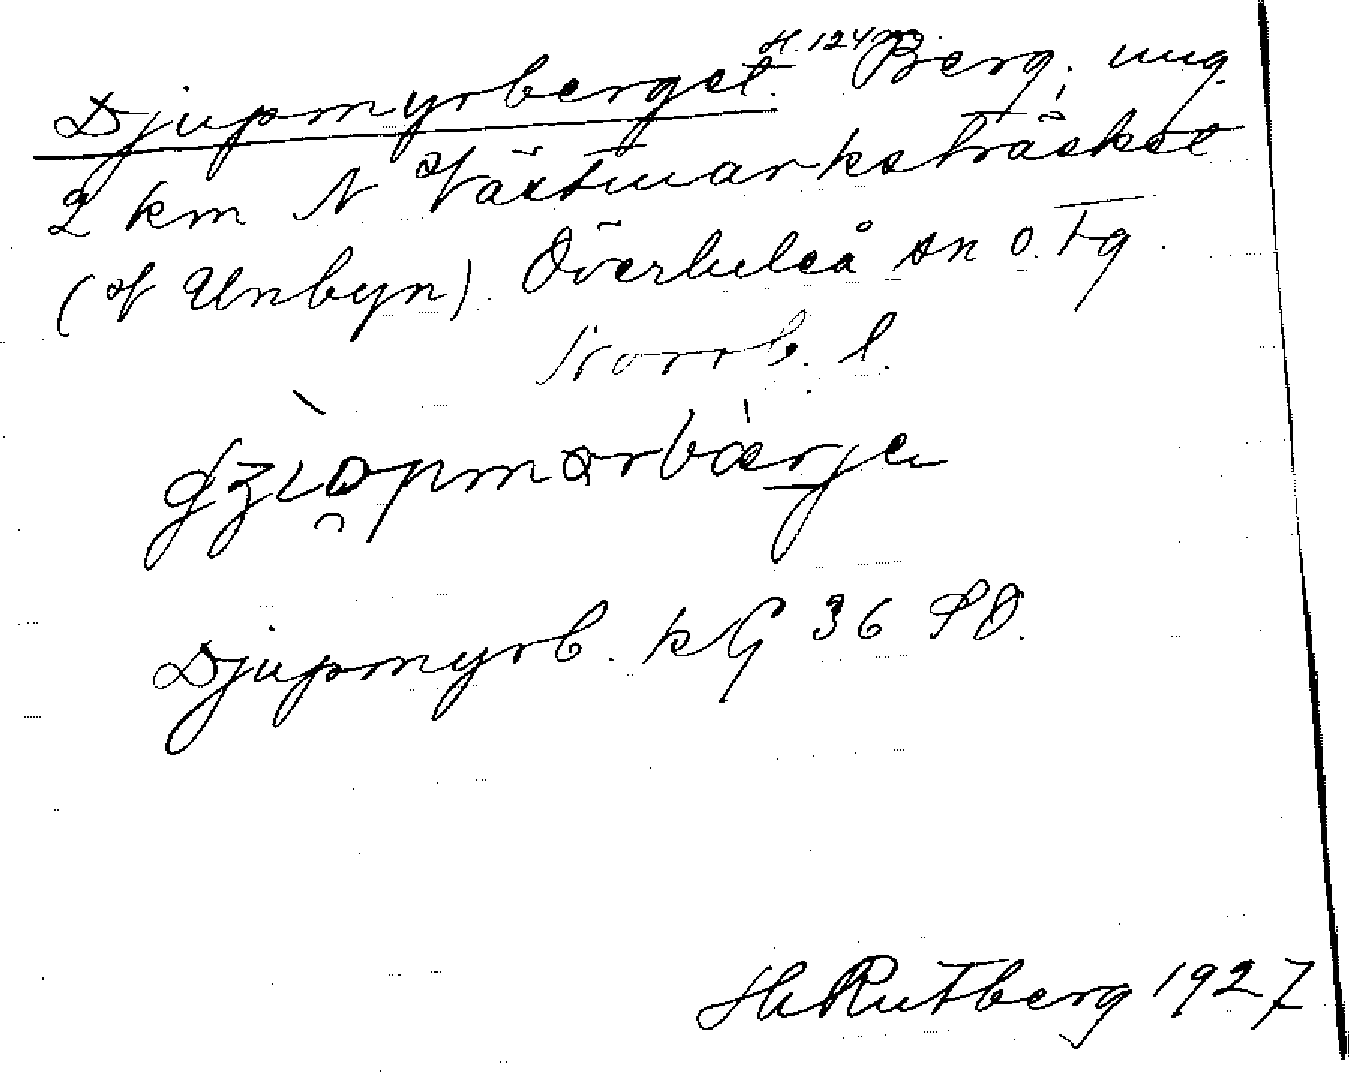 Djupmyrberget. H. 124 m. Berg, ung.
2 km N Västmarksträsket
(V Unbyn). Överluleå sn o. Tg.
Norrb. l.
Djupmyrb. kG 36 SO.
H. Rutberg 1927